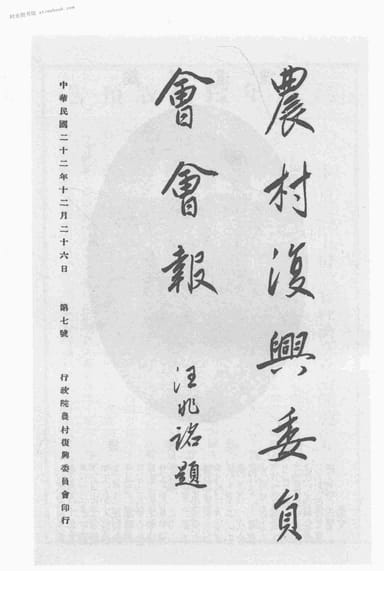 農村復興委員
會會報
汪兆銘題
中華民國二十二年十二月二十六日 第七號 行政院農村復興委員會印行